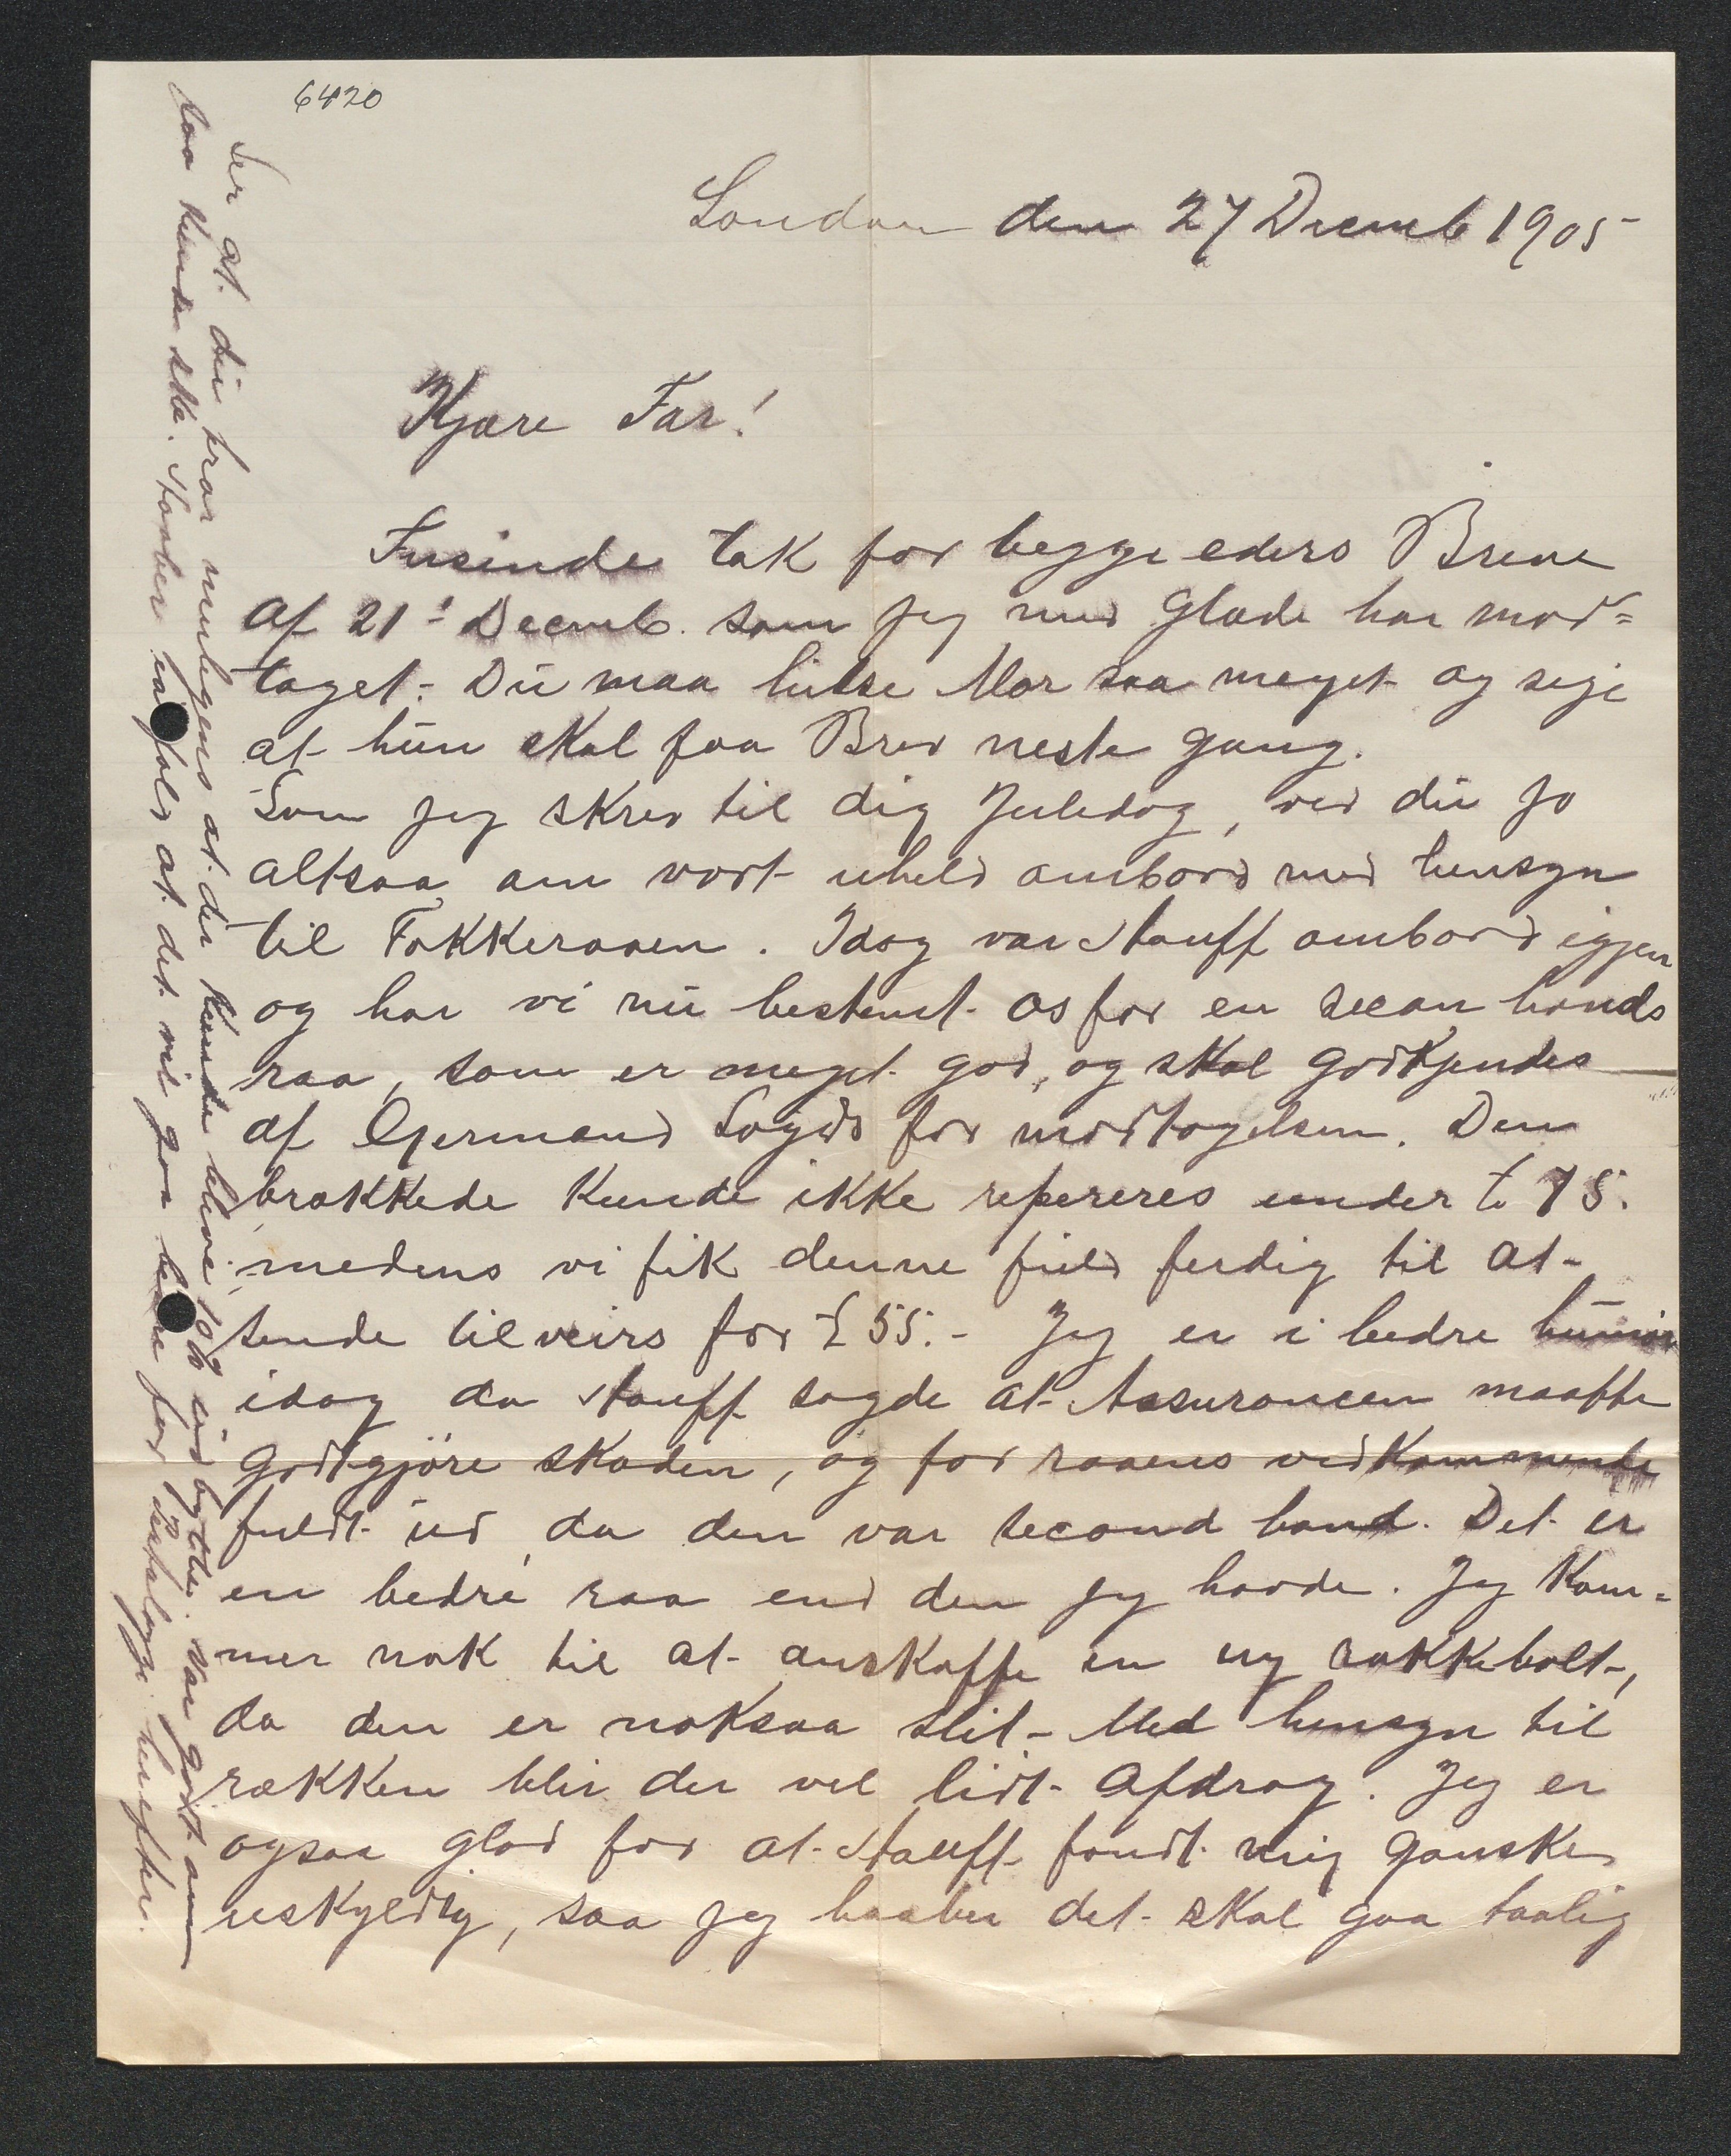 6420
London den 27 Decemb 1905
Kjære Far!
Tusinde tak for begge eders Breve
af 21' Decemb. som jeg med Glæde har mod=
taget. Du maa hilse Mor saa meget og sige
at hun skal faa Brev neste gang.
Som jeg skrev til dig Juledag, ved du jo
altsaa om vort uheld ombord med hensyn
til Fokkeraaen. Idag var Stauff ombord igjen
og har vi nu bestemt os for en secon hands
raa, som er meget god, og skal godkjendes
af Germand Loyds før modtagelsen. Den
brækkede kunde ikke repereres under £ 75.
medens vi fik denne fuld ferdig til at
sende tilveirs for £ 55.- Jeg er i bedre humør
idag da Stauff sagde at Assurancen maatte
godtgjøre skaden, og for raaens vedkommende
fuldt ud, da den var second hand. Det er
en bedre raa end den jeg havde. Jeg kom=
mer nok til at anskaffe en ny rakkebolt,
da den er noksaa slit - Med hensyn til
rækken blir der vel lidt Afdrag. Jeg er
ogsaa glad for at Stauff fandt mig ganske
uskyldig, saa jeg haaber det skal gaa taalig
Ser at du tror muligens at der kunde blive 10% udbytte. Var godt om
saa kunde ske. Haaber ialfald at det vil gaa bedre for herefter.